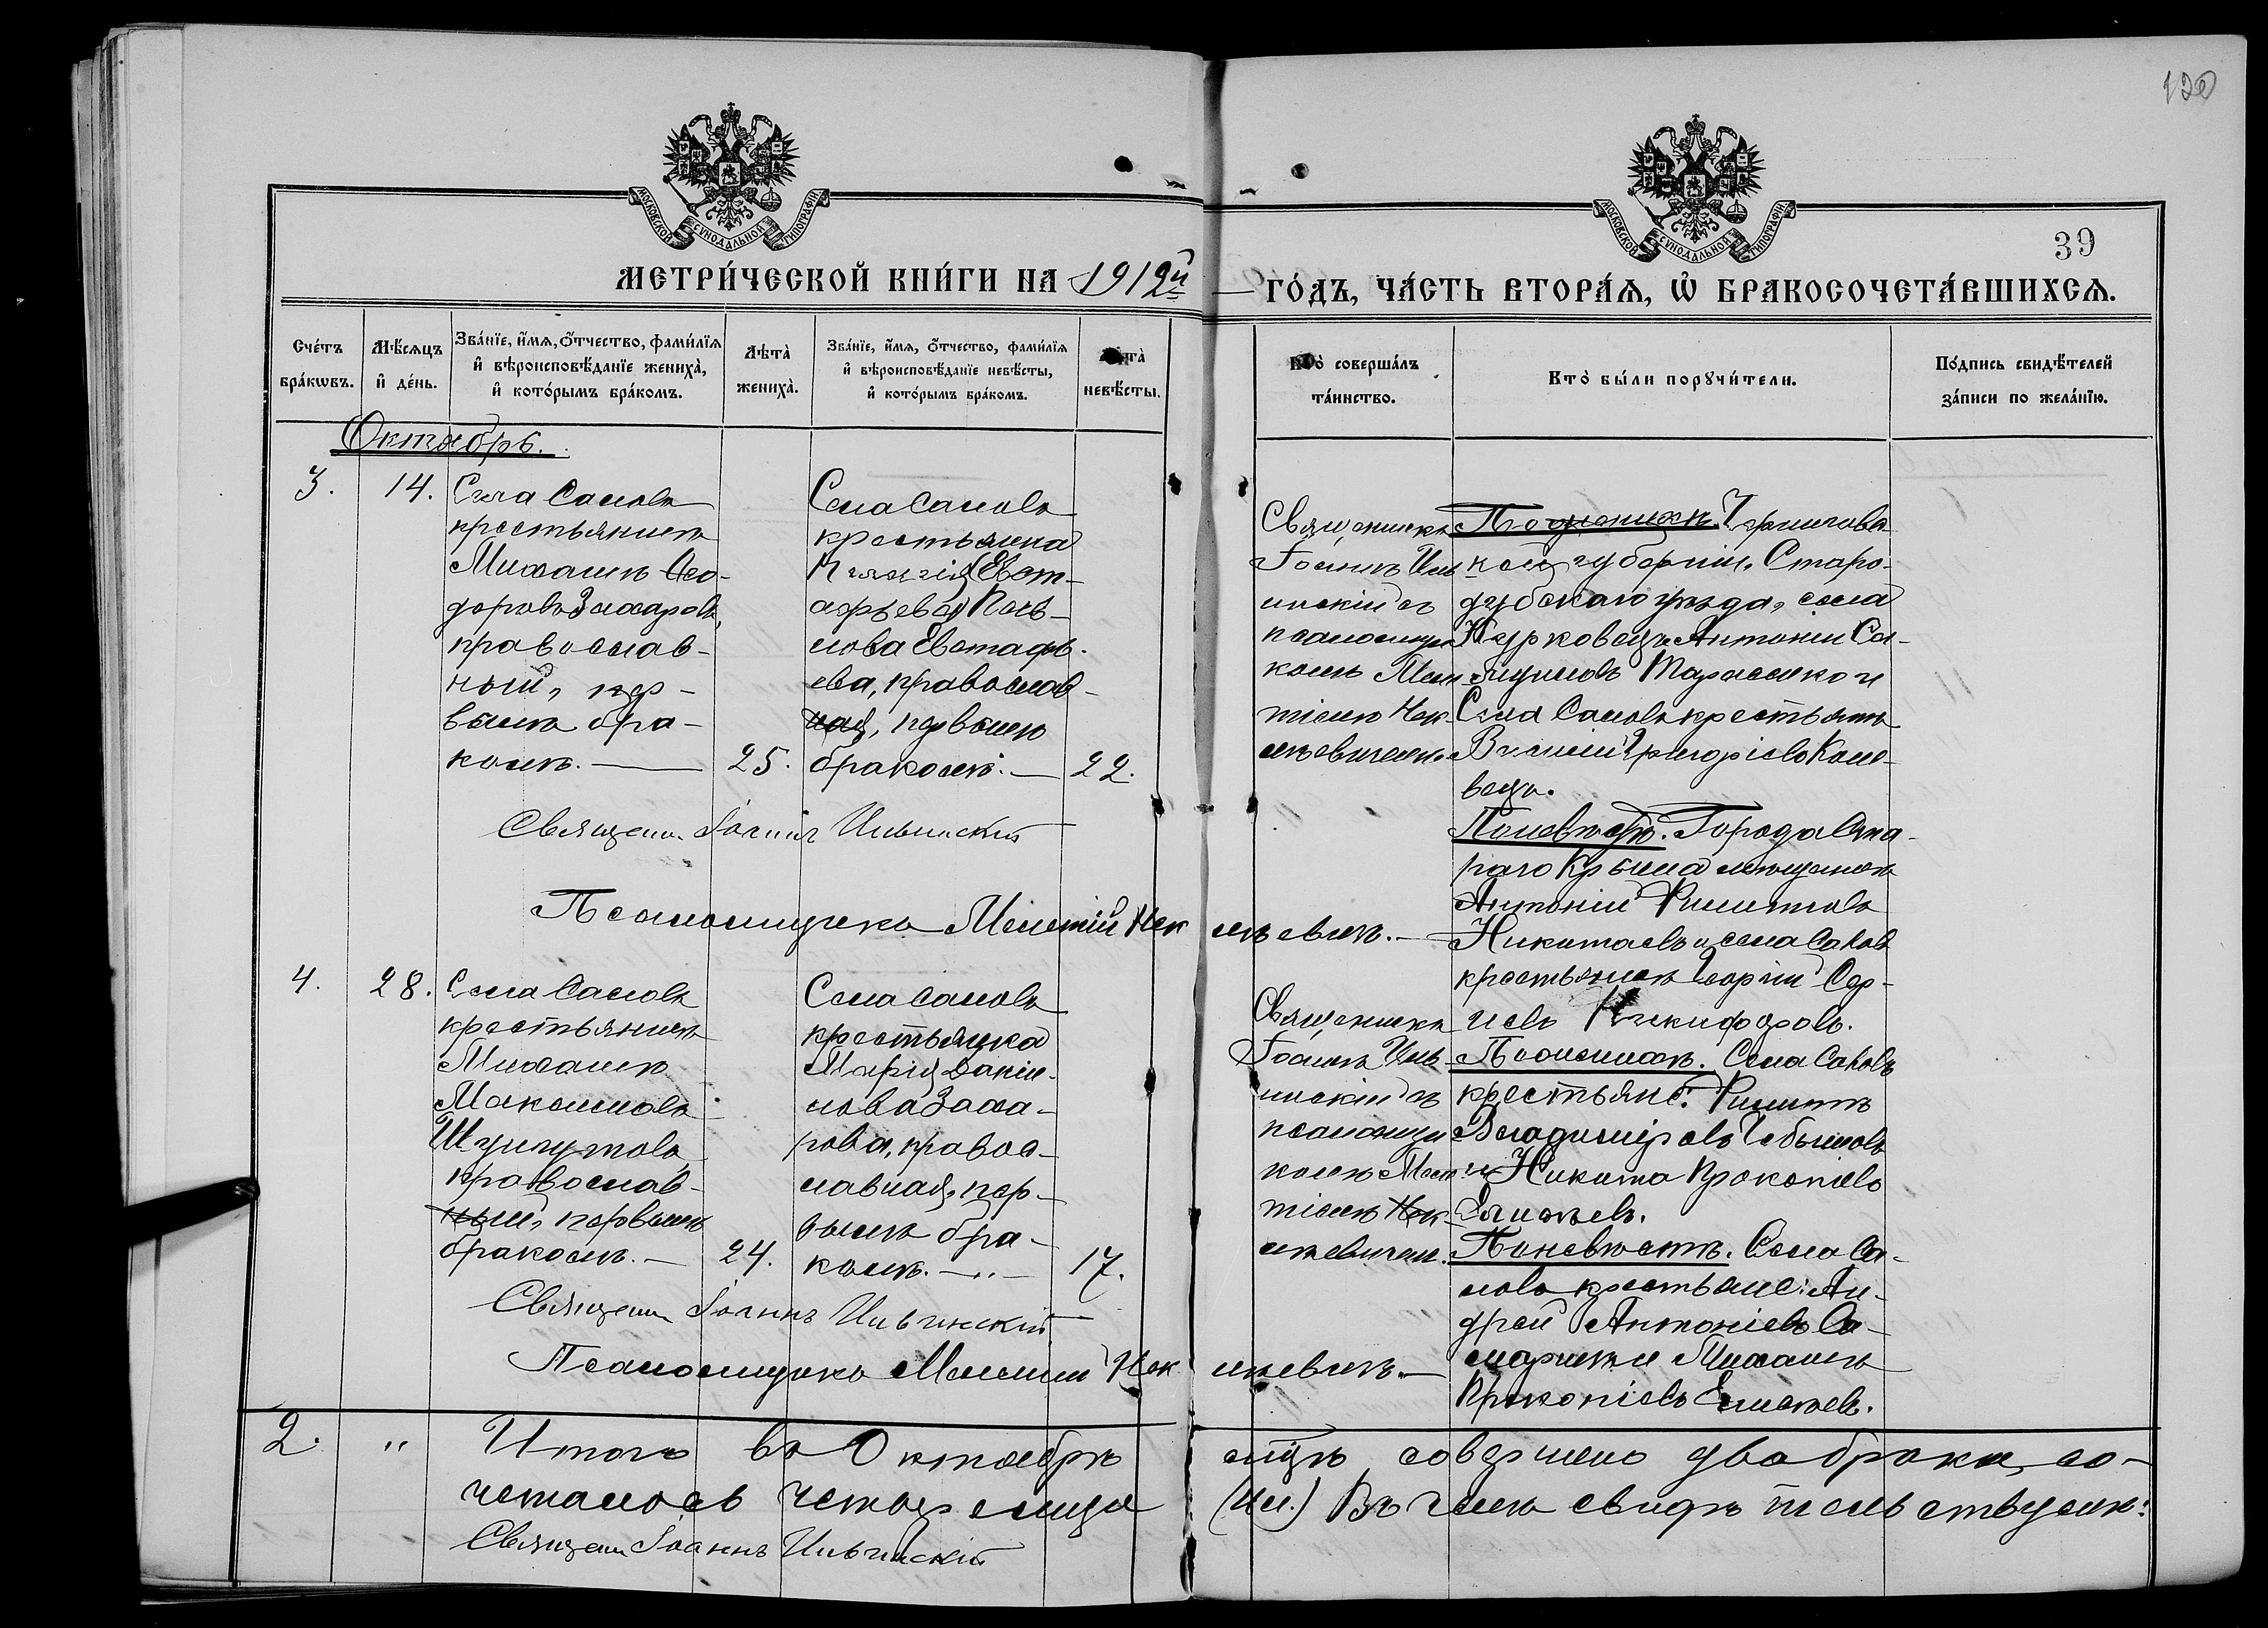 120
МОСКОВСКОЙ СУНОДАЛЬНОЙ ТИПОГРАФІИ
МОСКОВСКОЙ СУНОДАЛЬНОЙ ТИПОГРАФІИ
39
МЕТРИ́ЧЕСКОЙ КНИ́ГИ НА 1912й
ГО́ДЪ, ЧА́СТЬ ВТОРА́Ѧ, Ѽ БРАКОСОЧЕТА́ВШИХСѦ.
Сче́тъ
бра́кѡвъ.
Мѣ́сѧцъ
и҆ де́нь.
Зва́нїе, и҆́мѧ, ѻ҆́тчество, фами́лїѧ
и҆ вѣроисповѣ́данїе жениха̀,
и҆ кото́рымъ бра́комъ.
Лѣта̀
жениха̀.
Зва́нїе, и҆́мѧ, ѻ҆́тчество, фами́лїѧ
и҆ вѣроисповѣ́данїе невѣ́сты,
и҆ кото́рымъ бра́комъ.
Лѣта̀
невѣ́сты.
Кто̀ соверша́лъ
та́инство.
Кто̀ бы́ли порꙋчи́тели.
По́дпись свидѣ́телей
за́писи по жела́нїю.
Октябрь.
3.
14.
Села Саловъ
крестьянинъ
Михаилъ Ѳео-
доровъ Захаровъ,
православ-
ный, пер-
вымъ бра-
комъ. —
25.
Села Саловъ
крестьянка
Пелагія Евст-
афьева
лова Евстафь-
ева, православ-
ная, первымъ
бракомъ. —
22.
Священникъ
Іоаннъ Иль-
инскій съ
псаломщи-
комъ Меле-
тіемъ Нек-
левичемъ.
По женихѣ: Чернигов-
ской губерніи, Старо-
дубскаго уѣзда, села
Курковецъ Антоній
Тарасенко и
Села Саловъ крестьянинъ
Григоріевъ Коло-
вецъ.
По невѣстѣ. Города Ста-
раго Крыма мѣщанинъ
Антоній Филипповъ
Никитаевъ и села Саловъ
крестьянинъ Георгій Сер-
гіевъ Никифоровъ.
Священ. Іоаннъ Ильинскій
Псаломщикъ Мелетій Неклевичъ. —
4.
28.
Села Саловъ
крестьянинъ
Михаилъ
Максимовъ
православ-
ный, первымъ
бракомъ. —
24.
Села Саловъ
крестьянка
Марія Данiи-
лова Заха-
рова, правос-
лавная, пер-
вымъ бра-
комъ. —
17.
Священникъ
Іоаннъ Иль-
инскій съ
псаломщи-
комъ Меле-
тіемъ Нек-
левичем.
По женихѣ. Села Саловъ
крестьяне: Филиппъ
Владиміровъ
и Никита Прокопіевъ
По невѣстѣ. Села Са-
ловъ крестьяне: Ан-
дрей Антоніевъ Са-
и Михаилъ
Прокопіевъ
Священ. Іоаннъ Ильинскій
Псаломщикъ Мелетій Неклевичъ. —
2. " Итого въ Октябрѣ мцѣ совершено два брака, со-
четалось четыре лица (4 л.) Въ чемъ свидѣтельствуемъ:
Священ. Іоаннъ Ильинскій